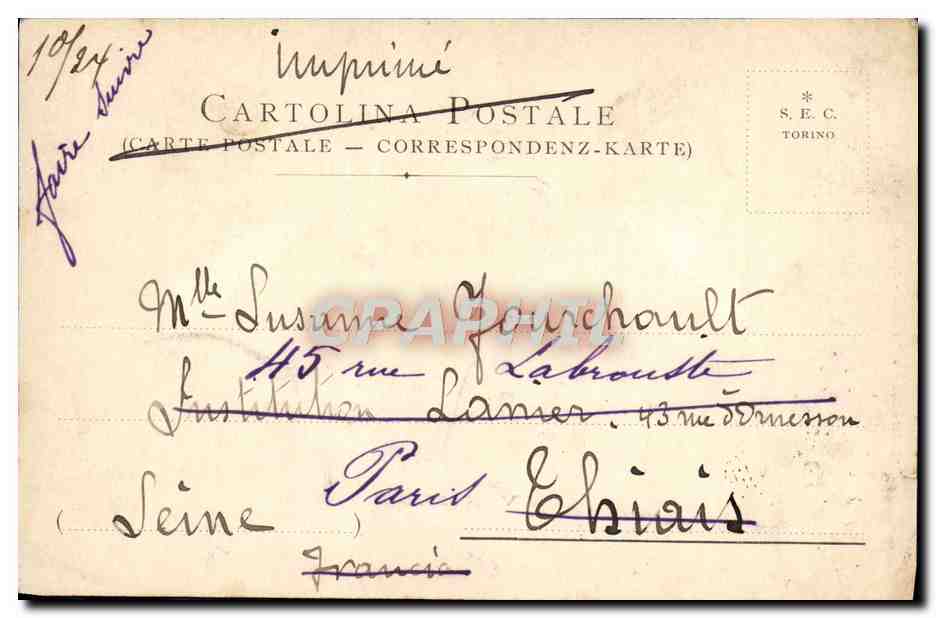 10/24
faire suivre
Imprimé
CARTOLINA POSTALE
(CARTE POSTALE — CORRESPONDENZ-KARTE)
*
S. E. C.
TORINO
Mlle Susanne Jourchault
CPAPHIL
45 rue Labrouste
Institution Lanier, 43 rue d'Ormesson
Paris Thiais
(Seine)
Francia